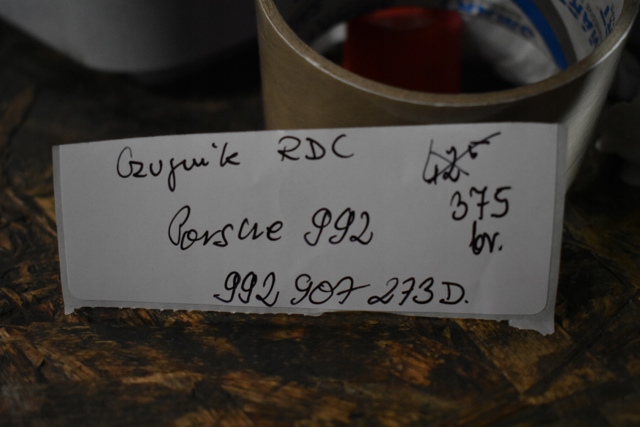 Czujnik RDC 425
Porsche 992 375
br.
992 907 273 D.